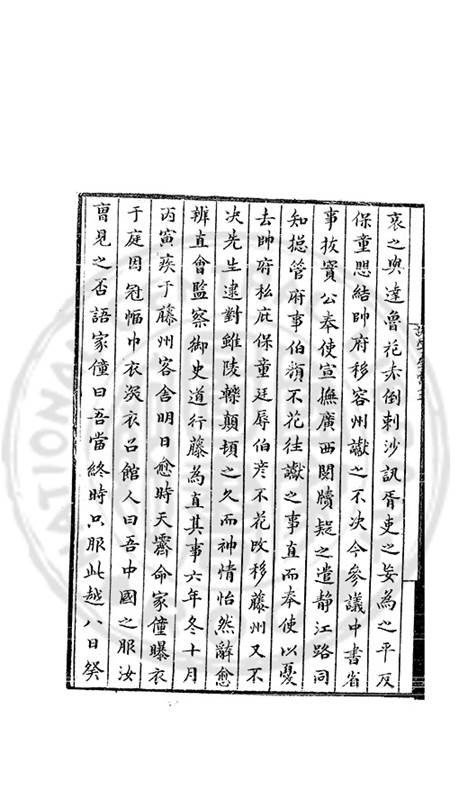 哀之與達魯花赤倒剌沙訊胥吏之妄為之平反
保童愳結帥府移容州讞之不決今參議中書省
事拔實公奉使宣撫廣西閱牘疑之遣靜江路同
知揔管府事伯顏不花往讞之事直而奉使以憂
去帥府私庇保童廷辱伯彥不花改移藤州又不
決先生逮對雖陵轢顛頓之久而神情怡然辭愈
辨直會監察御史道行藤為直其事六年冬十月
丙寅疾于藤州客舍明日愈時天霽命家僮曝衣
于庭因冠幅巾衣深衣召館人曰吾中國之服汝
曾見之否語家僮曰吾當終時只服此越八日癸